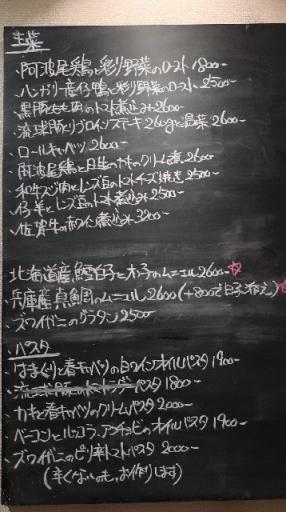 主菜
・阿波尾鶏と彩り野菜のロースト 1800-
・ハンガリー産仔鴨と彩り野菜のロースト 2500-
・黒豚もも肉のトマト煮込み 2600-
・琉球豚リブロインステーキ 260gと温菜 2600-
・ロールキャベツ 2600-
・阿波尾鶏と のカキのクリーム煮 2600
・和牛スジ肉とレンズ豆のトマトチーズ焼き 2500-
・仔羊とレンズ豆のトマト煮込み 2500-
・佐賀牛の赤ワイン煮込み 3200-
北海道産鱈白子と木の子のムニエル 2600-☆
・兵庫産真鯛のムニエル 2600 (+800で白子添え)
・ズワイガニのグラタン 2500
・パスタ
・はまぐりと春キャベツの白ワインオイルパスタ 1900-
パスタ 1800-
・カキと春キャベツのクリームパスタ 2000-
・ベーコンとルッコラ、アンチョビのオイルパスタ 1900-
・ズワイガニのピリ辛トマトパスタ 2000-
(辛くないのも、お作りします)